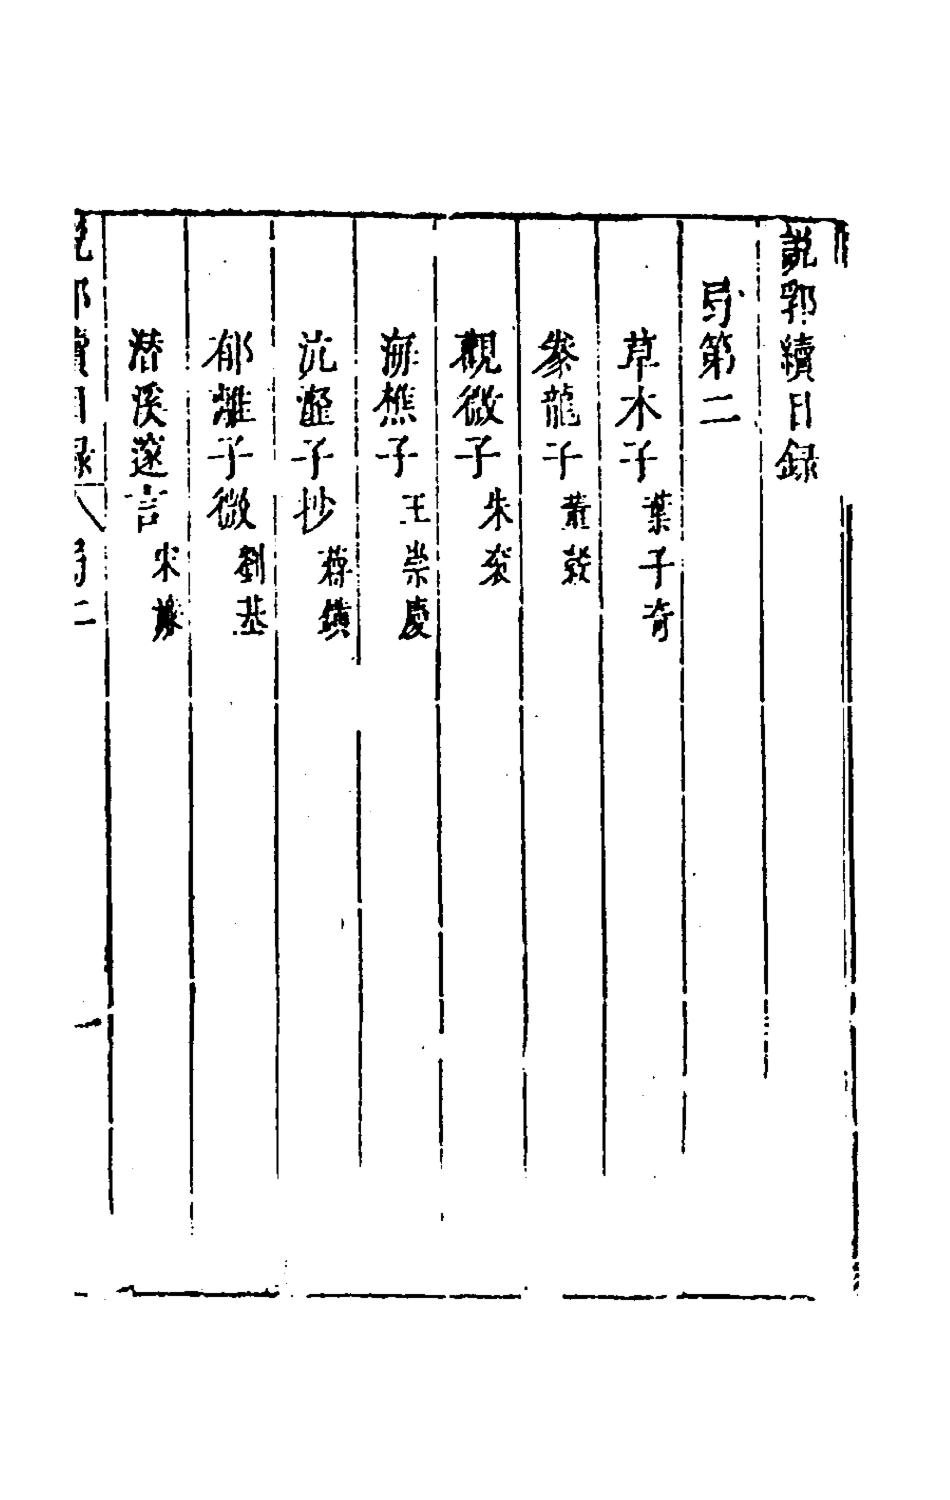 說郛續目錄
弓第二
草木子 葉子奇
豢龍子 董穀
觀微子 朱袞
海樵子 王崇慶
沆瀣子抄 蔣鐄
郁離子微 劉基
潛溪邃言 宋濂
說郛續目錄 弓二 一